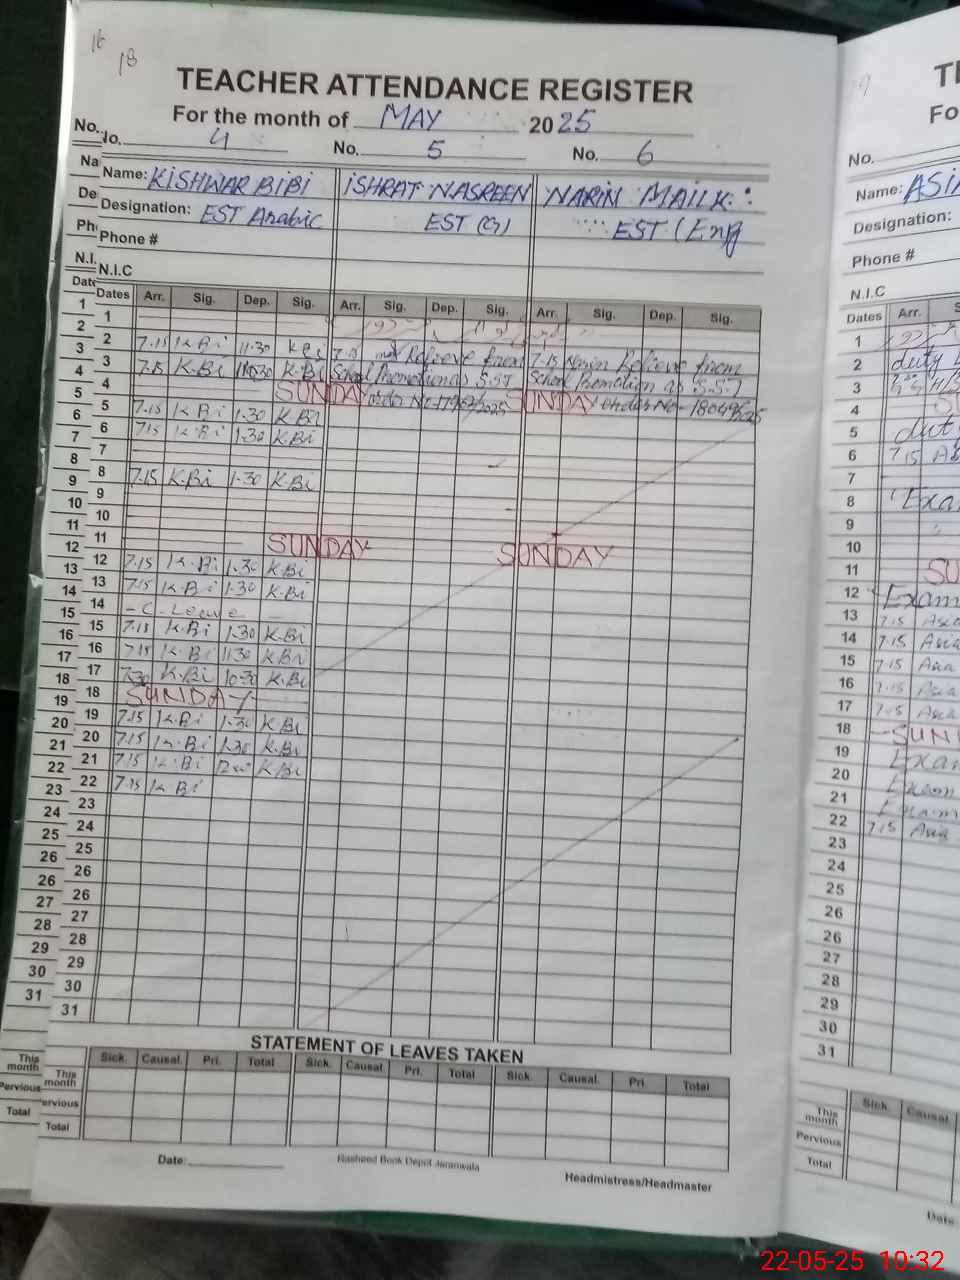 16
18
TEACHER ATTENDANCE REGISTER
For the month of MAY 2025
No. 4 No. 5 No. 6
Name: KISHWAR BIBI ISHRAT NASREEN NARIN MAILK
Designation: EST Arabic EST (G) EST (Eng)
Phone #
N.I.C
Dates Arr. Sig. Dep. Sig. Arr. Sig. Dep. Sig. Arr. Sig. Dep. Sig.
1
2 7.15 K.Bi 11.30 K.Bi 7.15 Relieve from 7.15 Relieve from
3 7.15 K.Bi K.Bi School Promotion as S.S.T School Promotion as S.S.T
4 SUNDAY order No- SUNDAY order No-
5 7.15 K.Bi 1.30 K.Bi
6 7.15 K.Bi 1.30 K.Bi
7
8 7.15 K.Bi 1.30 K.Bi
9
10
11 SUNDAY SUNDAY
12 7.15 K.Bi 1.30 K.Bi
13 7.15 K.Bi 1.30 K.Bi
14 - C - Leave
15 7.15 K.Bi 1.30 K.Bi
16 7.15 K.Bi 11.30 K.Bi
17 7.30 K.Bi 10.30 K.Bi
18 SUNDAY
19 7.15 K.Bi 1.30 K.Bi
20 7.15 K.Bi 1.30 K.Bi
21 7.15 K.Bi K.Bi
22 7.15 K.Bi
23
24
25
26
26
27
28
29
30
31
STATEMENT OF LEAVES TAKEN
Sick. Causal. Pri. Total Sick. Causal. Pri. Total Sick. Causal. Pri. Total
This month
Pervious
Total
Date:
Rasheed Book Depot Jaranwala
Headmistress/Headmaster
No.
Name: ASI
Designation:
Phone #
N.I.C
Dates Arr.
1
2 duty
3
4
5 dut
6 7.15
7
8 Exa
9
10
11 SU
12 Exam
13 7.15 Asia
14 7.15 Asia
15 7.15 Asia
16 7.15 Asia
17 7.15 Asia
18 SUN
19 Exa
20 Exam
21 Exam
22 7.15 Asia
23
24
25
26
26
27
28
29
30
31
Sick. Causal.
This month
Pervious
Total
Date
22-05-25 10:32